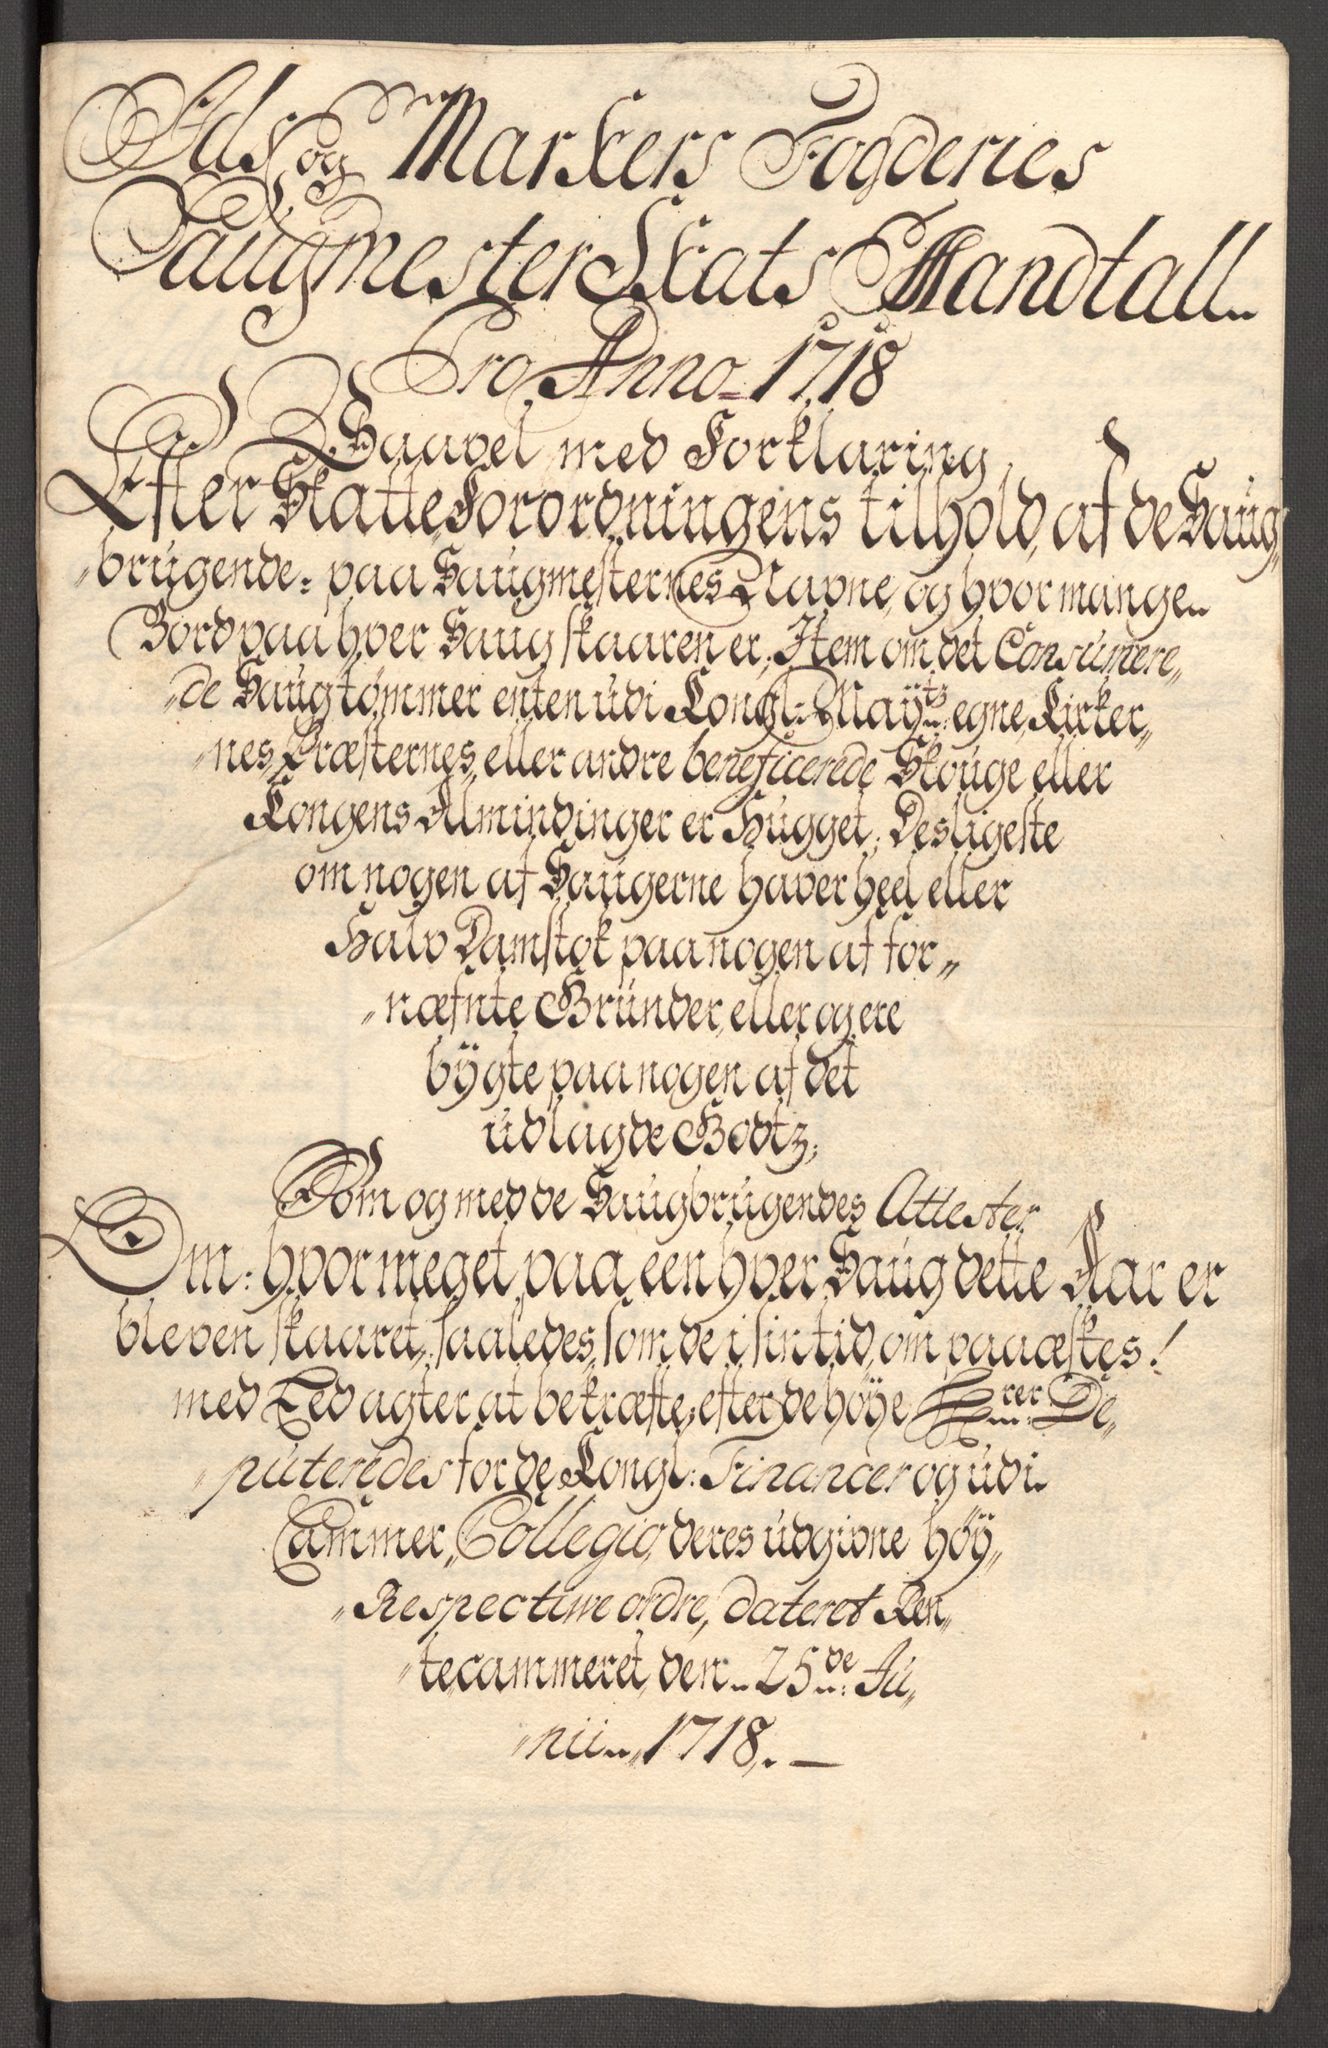 Ids og Markers Fogderies
Saugmester Skats Mandtall
Pro Anno 1718
Saavel med Forklaring
Efter Skatte Forordningens tilhold, af de Saug-
brugende: paa Saugmesternes Navne, og hvor mange
Bord paa hver Saug skaaren er, Item om det Consumere-
de Saugtømmer enten udi Kongl: Maytz egne, Kirker-
nes, Præsternes, eller andre beneficerede Skouge eller
Kongens Almindinger er Hugget, Desligeste
om nogen af Saugerne haver heel eller
Halv Damstok paa nogen af for-
næfnte Grunder, eller og ere
bygte paa nogen af det
udlagde Godtz,
Som og med de Saugbrugendes Attester
Om: hvor meget paa een hver Saug dette Aar er
bleven skaaret, saaledes, som de i sin tid, om paaæskes!
med Eed agter at bekræfte, efter de høye Hrrer De-
puteredes for de Kongl: Financer og udi
Cammer Collegio, deres udgivne høy-
Respective ordre, dateret Ren-
tecammeret, den 25de Ju-
nii 1718.